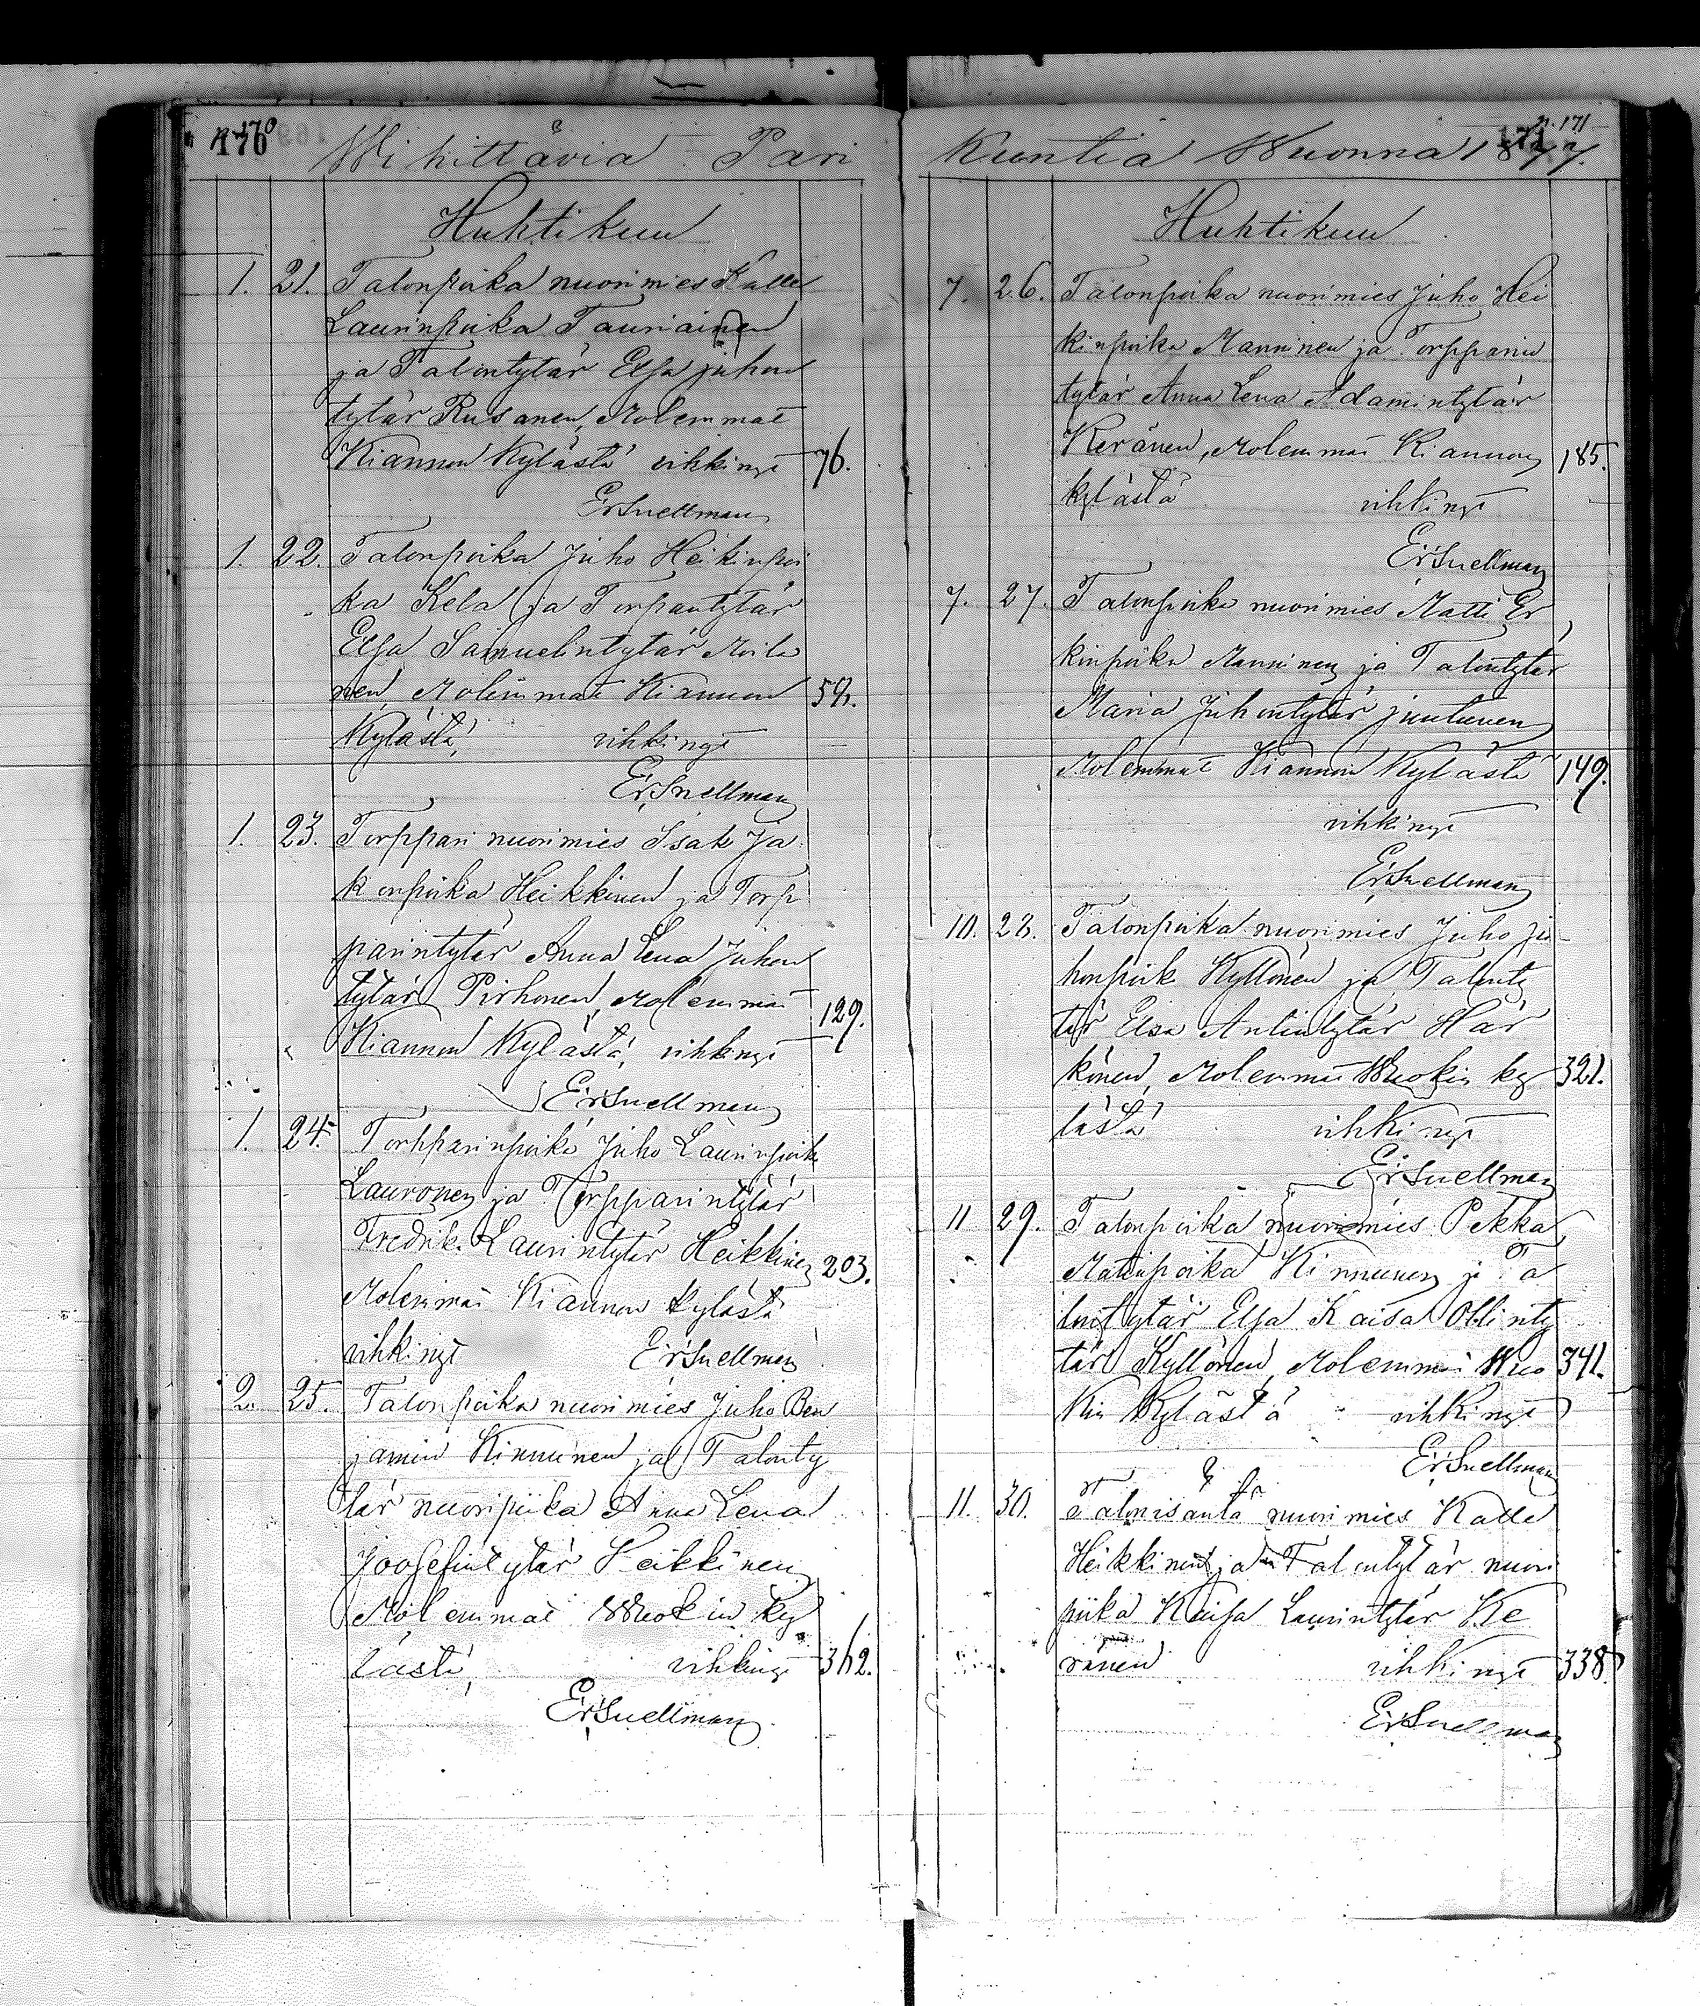 170
Wihittäviä Pari
Huhtikuu
1. 21. Talonpoika nuorimies Kalle
Laurinpoika Tauriainen
ja Talontytär Elsa juhon
tytär Rusanen, Molemmat
Kiannon Kylästä vihkinyt 76.
Er Snellman
1. 22. Talonpoika Juho Heikinpoi
ka Kela ja Torpantytär
Elsa Samuelintytär Moila
nen, Molemmat Kiannon
Kylästä, vihkinyt
Er Snellman
1. 23. Torppari nuorimies Isak Ja
konpoika Heikkinen ja Torp
parintytär Anna Lena Juhon
tytär Pirhonen, Molemmat
Kiannon Kylästä, vihkinyt 129.
Er Snellman
1. 24. Torpparinpoika Juho Laurinpoika
Lauronen ja Torpparintytär
Fredrik. Laurintytär Heikkinen 203.
Molemmat Kiannon kylästä
vihkinyt Er Snellman
2. 25. Talonpoika nuorimies Juho Ben
jamin Kinnunen ja Talonty
tär nuoripiika Anna Lena
Joosefintytär Heikkinen
Molemmat Wuokin ky
lästä, vihkinyt 362.
Er Snellman
171
Kuntia Wuonna 1877.
Huhtikuu
7. 26. Talonpoika nuorimies Juho Hei
kinpoika Manninen ja Torpparin
tytär Anna Lena Adamintytär
Keränen, Molemmat Kiannon 185.
kylästä vihkinyt
Er Snellman
7. 27. Talonpoika nuorimies Matti Er
kinpoika Manninen ja Talontytär
Maria Juhontytär juntunen
Molemmat Kiannon Kylästä 149.
vihkinyt
Er Snellman
10. 28. Talonpoika nuorimies Juho Ju
honpoik Kyllönen ja Talonty
tär Elsa Antintytär Här
könen, Molemmat Wuokin ky 321.
lästä vihkinyt
Er Snellman
11 29. Talonpoika nuorimies Pekka
Matinpoika Kinnunen ja Ta
lontytär Elsa Kaisa Ollinty
tär Kyllönen, Molemmat Wuo 341.
kin Kylästä vihkinyt
Er Snellman
11. 30. Talonisäntä nuorimies Kalle
Heikkinen ja Talontytär nuori
piika Kaisa Laurintytär Ke
ränen vihkinyt 338
Er Snellman